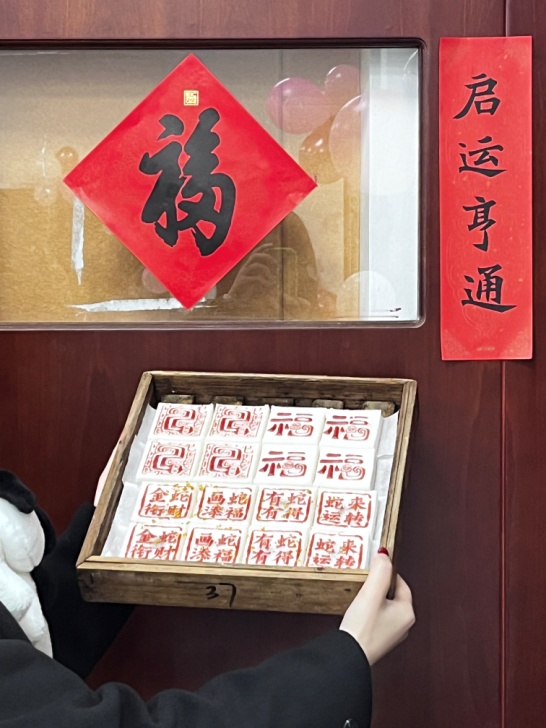 福
启运亨通
福 福
福 福
金蛇 画蛇 有蛇 蛇来
衔财 添福 有得 运转
金蛇 画蛇 有蛇 蛇来
衔财 添福 有得 运转
37